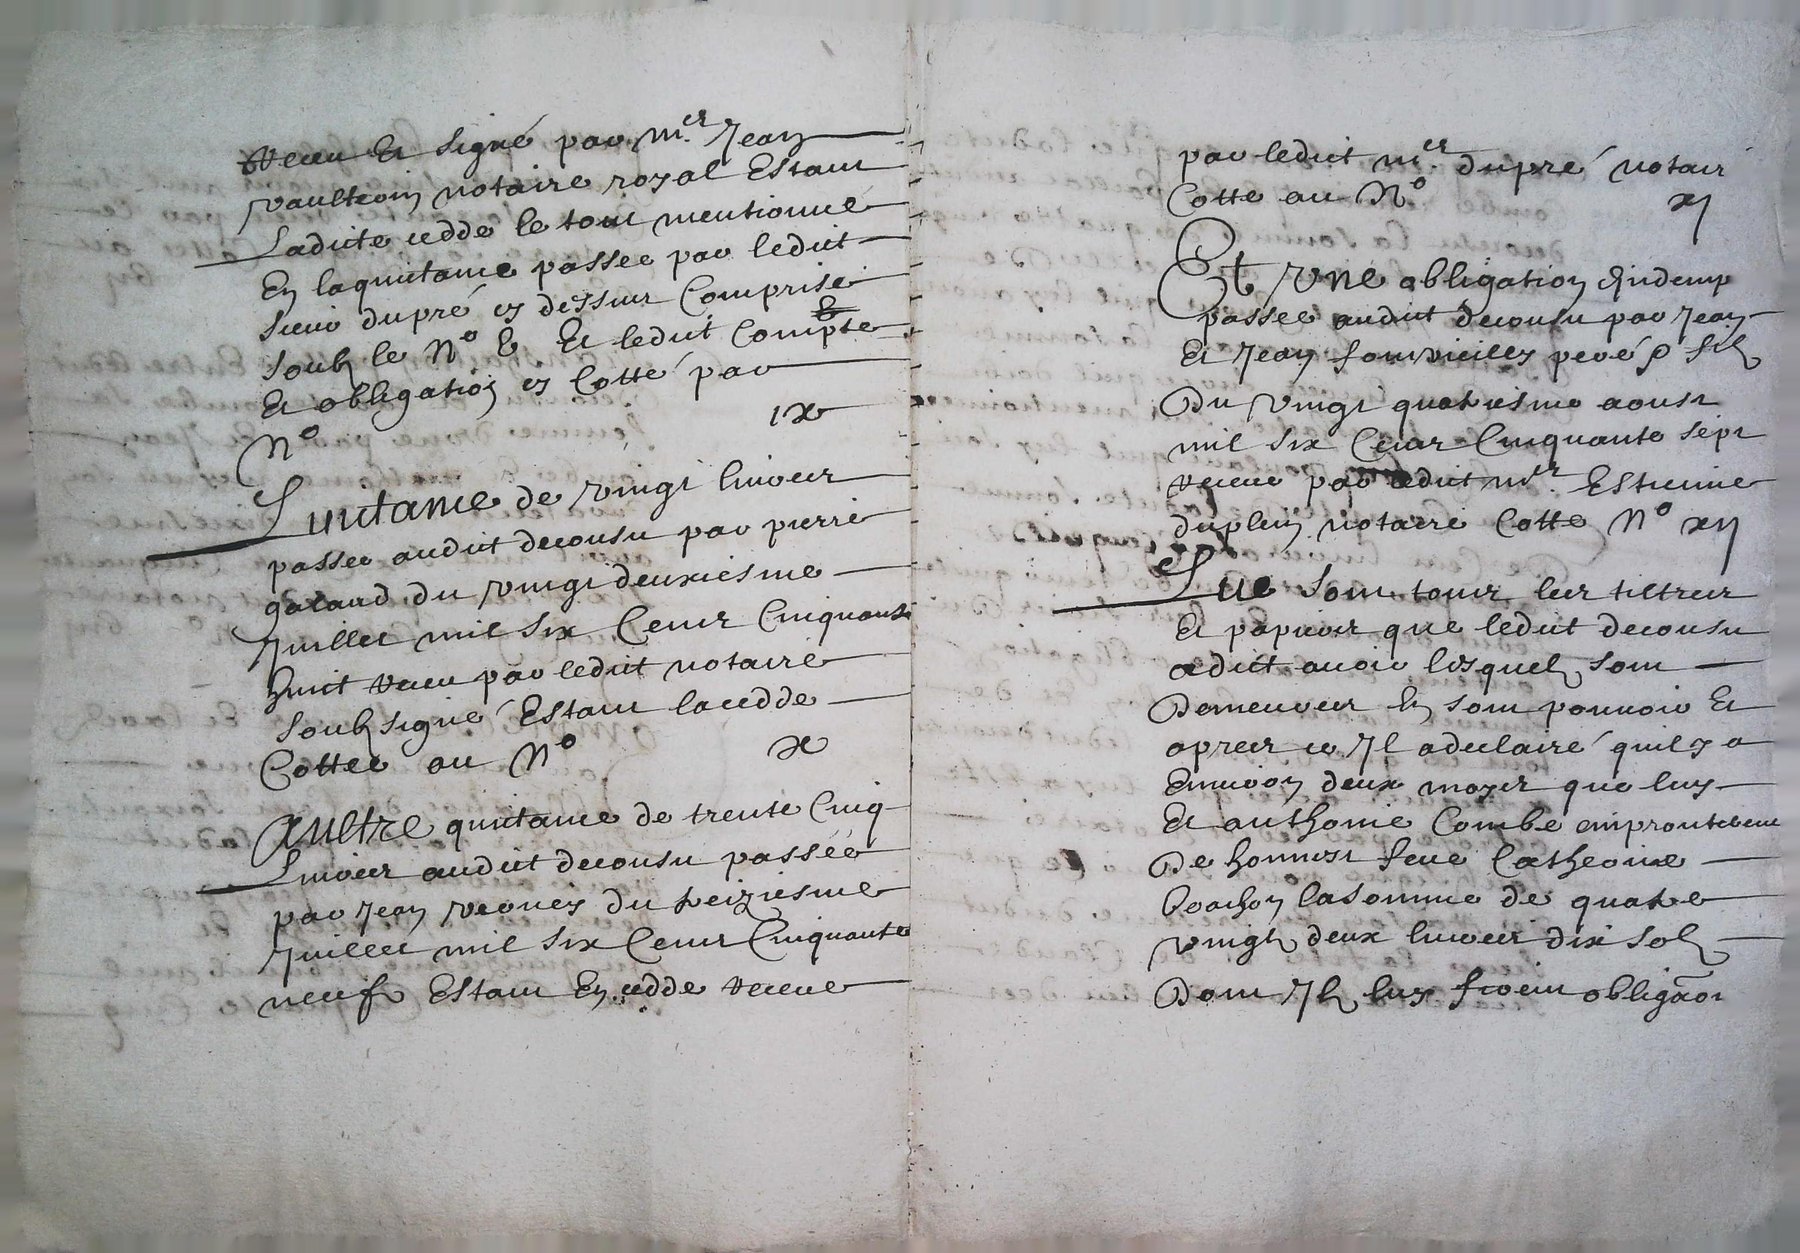 receu et signé par Mer Jean
vaultrein notaire royal Estant
Ladicte cedde le tout mentionné
En la quittance passee par ledict
sieur dupré cy dessus Comprise
soubz le No 6 Et ledict Compte
Et obligation cy Cotté par
No IX
Quittance de vingt livres
passee audict decousu par pierre
galaud du vingt deuxiesme
Juillet mil six Cents Cinquante
huit receu par ledict notaire
soubzsigné Estant la cedde
Cottee au No X
Aultre quittance de trente Cinq
Livres audict decousu passée
par Jean du treiziesme
Juillet mil six Cents Cinquante
neuf Estant En cedde receue
par ledict Mer dupré notaire
Cotte au No XI
Et Une obligation
passee audict decousu par Jean
Et Jean fourvieilles pere & filz
Du vingt quatriesme aoust
mil six Cents Cinquante sept
receue par ledict Mer Estienne
duplein notaire Cotte No XII
Que sont tous les tiltres
Et papiers que ledict decousu
a dict avoir lesquelz sont
Demeures En son pouvoir Et
apres ce Jl a declairé quil y a
Environ deux moys que luy
Et anthoine Combe empronterent
De honneste feue Catherine
Brachon la somme de quatre
vingtz deux livres dix solz
Dont Jlz luy firent obligaon